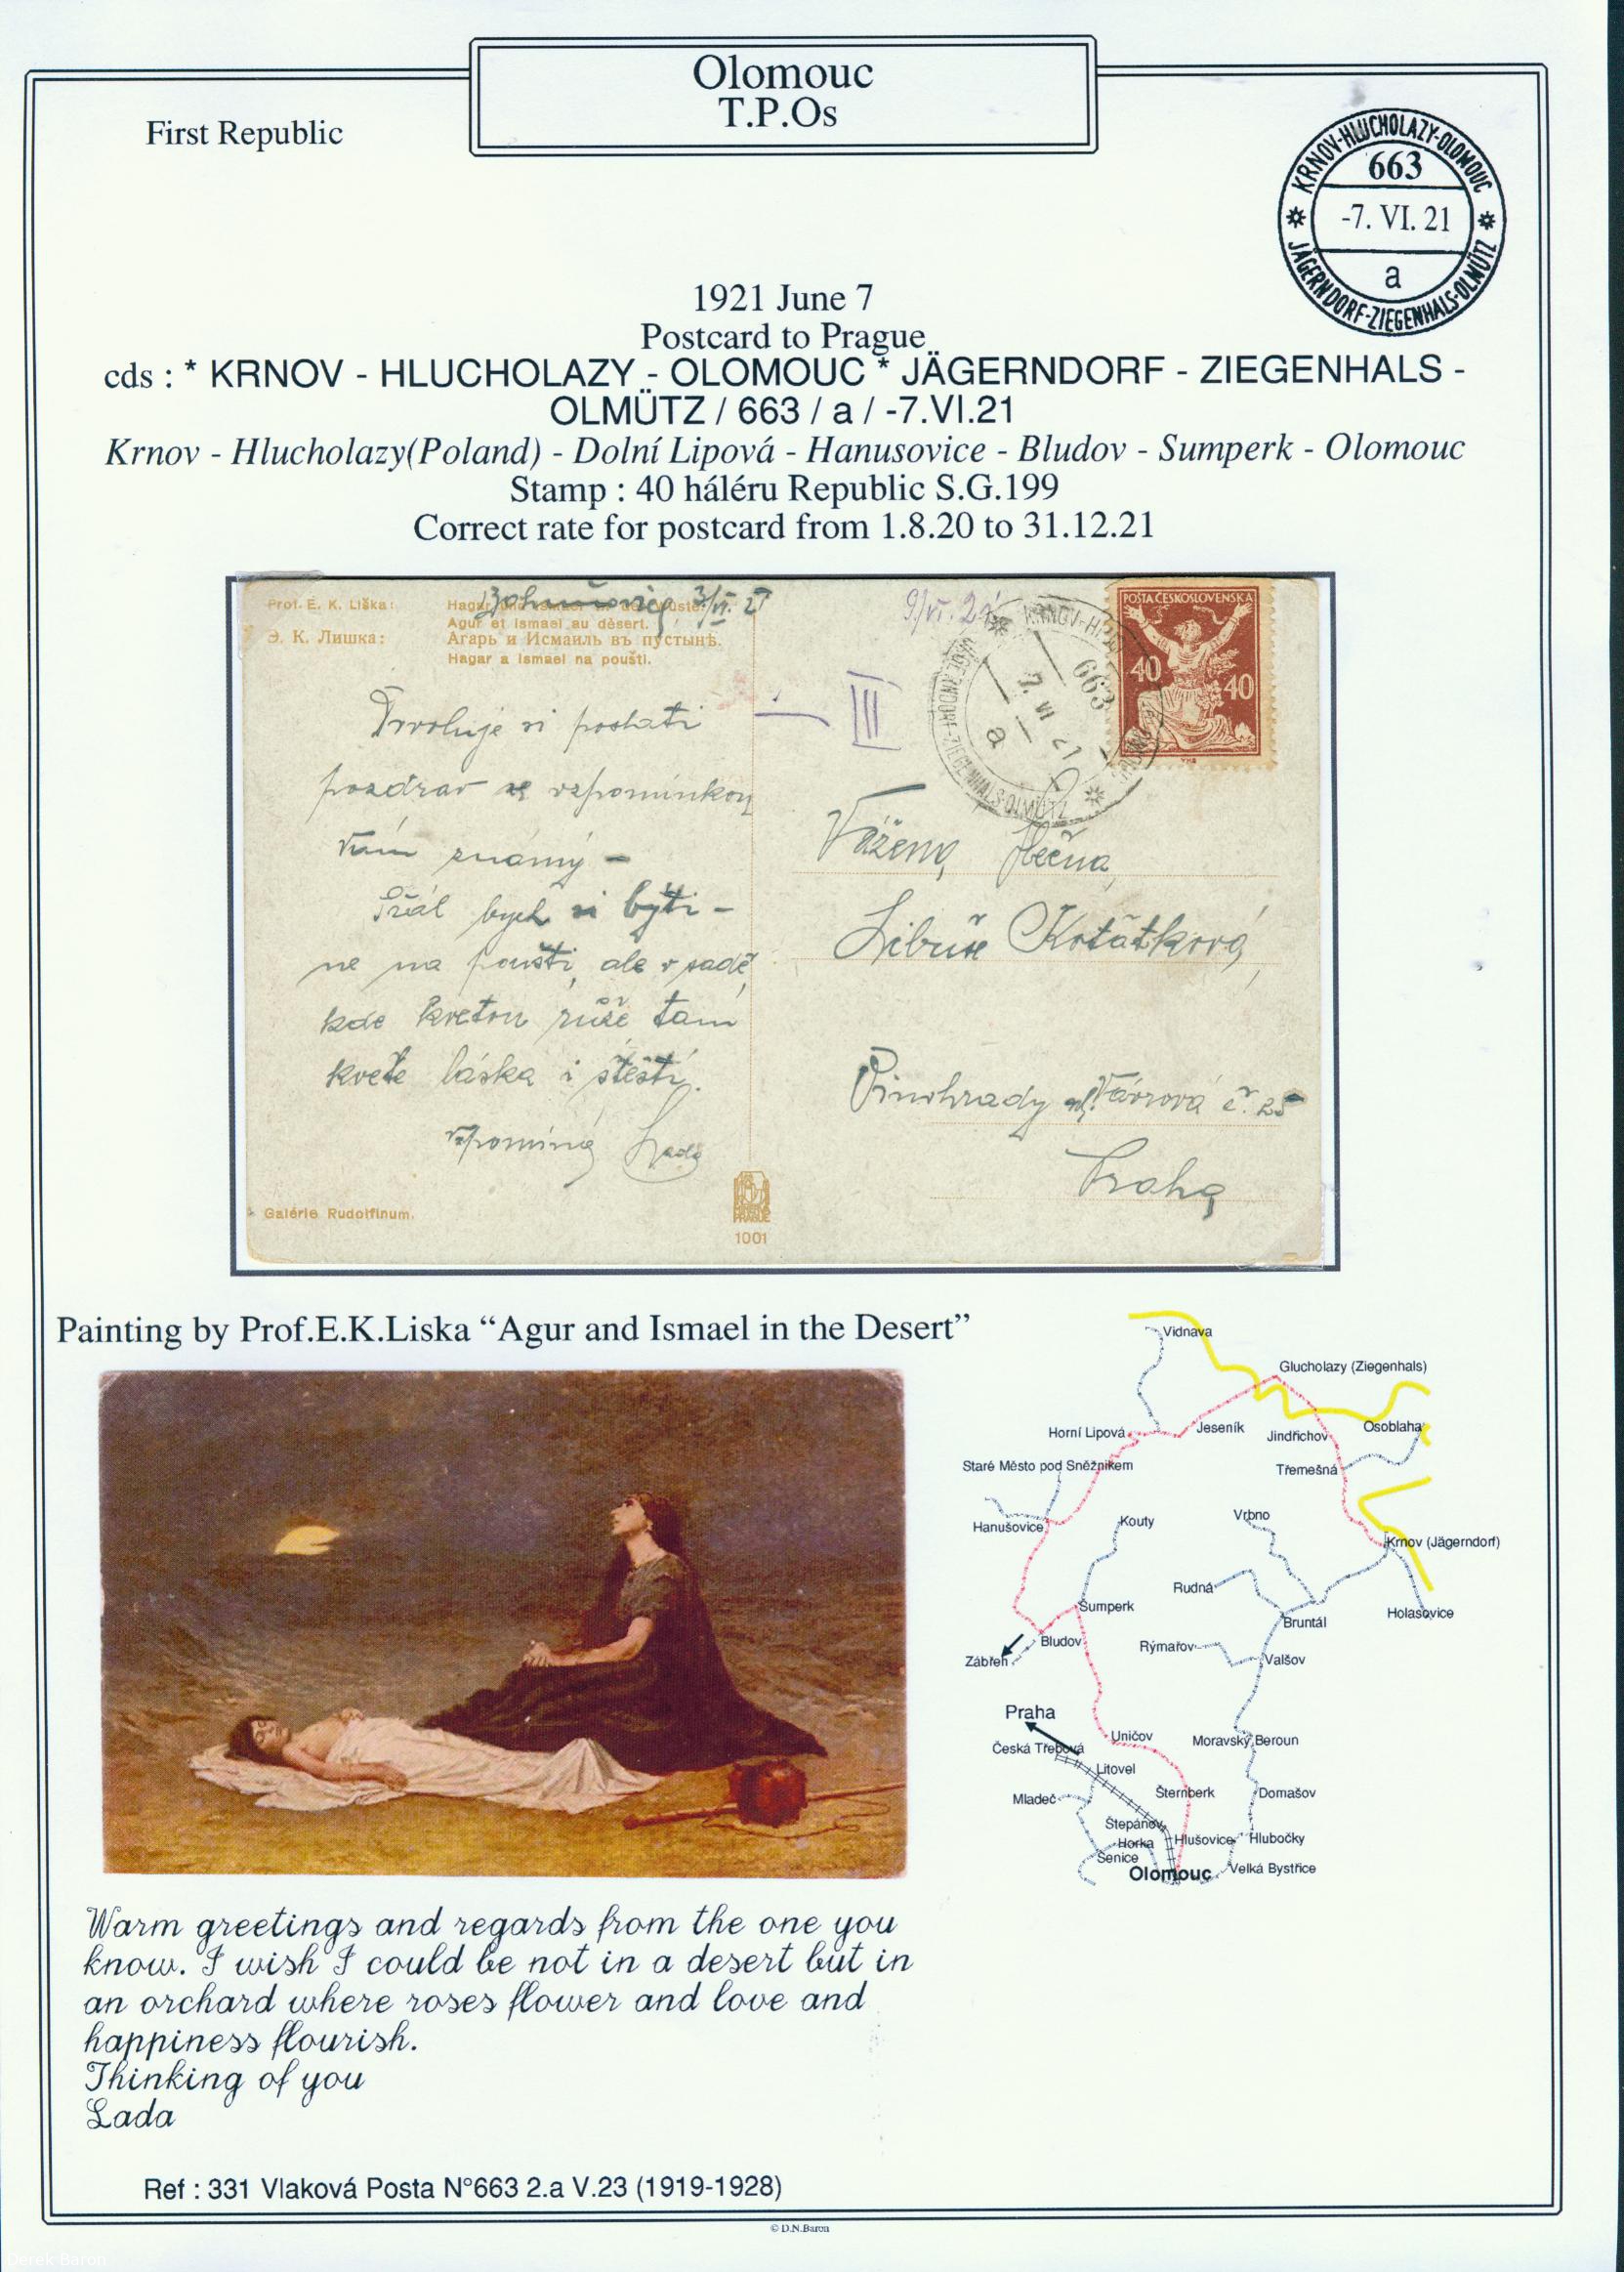 Olomouc
T.P.Os
First Republic
KRNOV-HLUCHOLAZY-OLOMOUC
663
-7. VI. 21
a
JÄGERNDORF-ZIEGENHALS-OLMÜTZ
1921 June 7
Postcard to Prague
cds : * KRNOV - HLUCHOLAZY - OLOMOUC * JÄGERNDORF - ZIEGENHALS -
OLMÜTZ / 663 / a / -7.VI.21
Krnov - Hlucholazy(Poland) - Dolní Lipová - Hanusovice - Bludov - Sumperk - Olomouc
Stamp : 40 háléru Republic S.G.199
Correct rate for postcard from 1.8.20 to 31.12.21
Prof. E. K. Liška:
Hagar
Agur et Ismael au désert.
Э. К. Лишка:
Агарь и Исмаилъ въ пустынѣ.
Hagar a Ismael na poušti.
9/VI. 21
III
KRNOV-H
663
7. VI 21
a
JÄGERNDORF-ZIEGENHALS-OLMÜTZ
POŠTA ČESKOSLOVENSKA
40
40
si poslati
pozdrav se vzpomínkou
Vám známý -
Přál bych si býti -
ne na poušti, ale v sadě,
kde kvetou růže tam
kvete láska i štěstí.
vzpomíná Lada
Vážená slečna,
Libuše Koťátková,
Vinohrady ul. Vávrova č. 25
Praha
Galérie Rudolfinum.
PRAGUE
1001
Painting by Prof.E.K.Liska “Agur and Ismael in the Desert”
Vidnava
Glucholazy (Ziegenhals)
Horní Lipová
Jeseník
Jindřichov
Osoblaha
Staré Město pod Sněžníkem
Třemešná
Hanušovice
Kouty
Vrbno
Krnov (Jägerndorf)
Rudná
Šumperk
Bruntál
Holasovice
Bludov
Rýmařov
Zábřeh
Valšov
Praha
Uničov
Moravský Beroun
Česká Třebová
Litovel
Mladeč
Šternberk
Domašov
Štepánov
Horka
Hlušovice
Hlubočky
Senice
Olomouc
Velká Bystřice
Warm greetings and regards from the one you
know. I wish I could be not in a desert but in
an orchard where roses flower and love and
happiness flourish.
Thinking of you
Lada
Ref : 331 Vlaková Posta N°663 2.a V.23 (1919-1928)
© D.N.Baron
Derek Baron